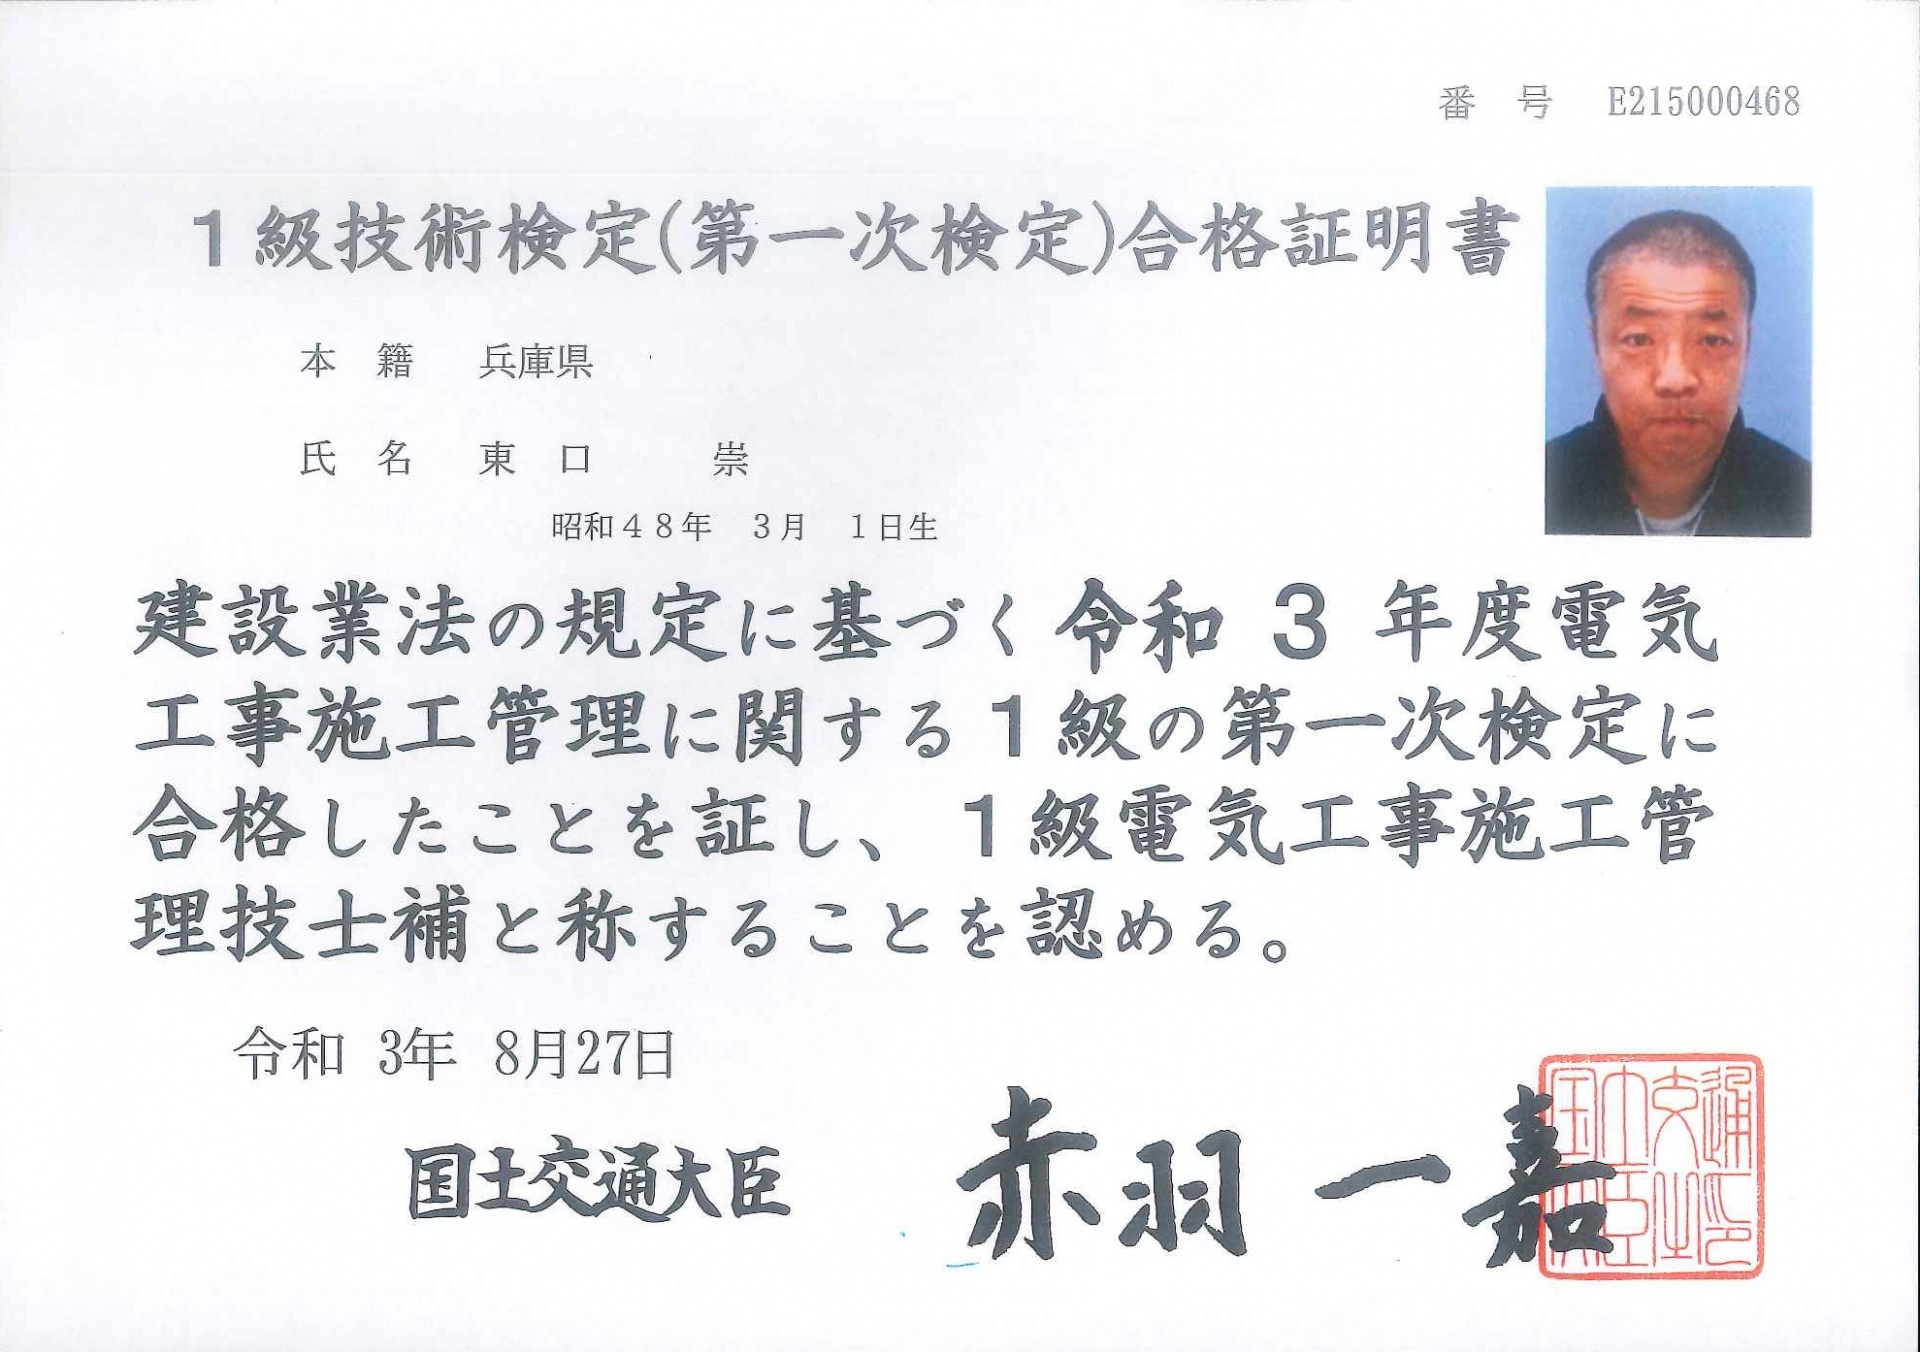 番 号 E215000468
1級技術検定(第一次検定)合格証明書
本 籍 兵庫県
氏 名 東 口 崇
昭和48年 3月 1日生
建設業法の規定に基づく令和 3 年度電気
工事施工管理に関する1級の第一次検定に
合格したことを証し、1級電気工事施工管
理技士補と称することを認める。
令和 3年 8月27日
国土交通大臣 赤羽 一嘉